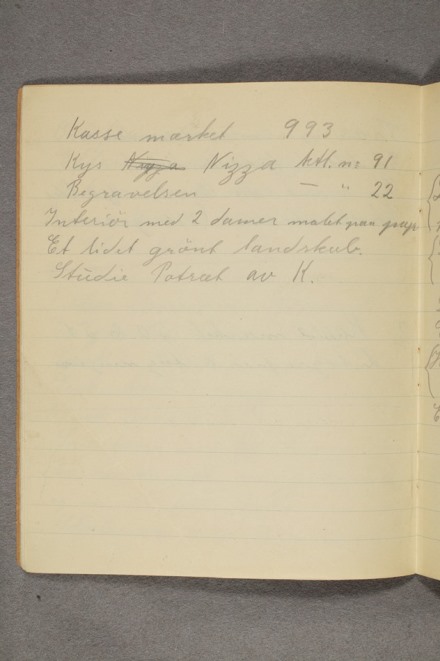 Kasse mærket 993
Kys Nizza Nizza ktl. nr 91
Begravelsen — " 22
Interiör med 2 damer malet paa pap
Et lidet grönt landskab.
Studie Potræt av K.